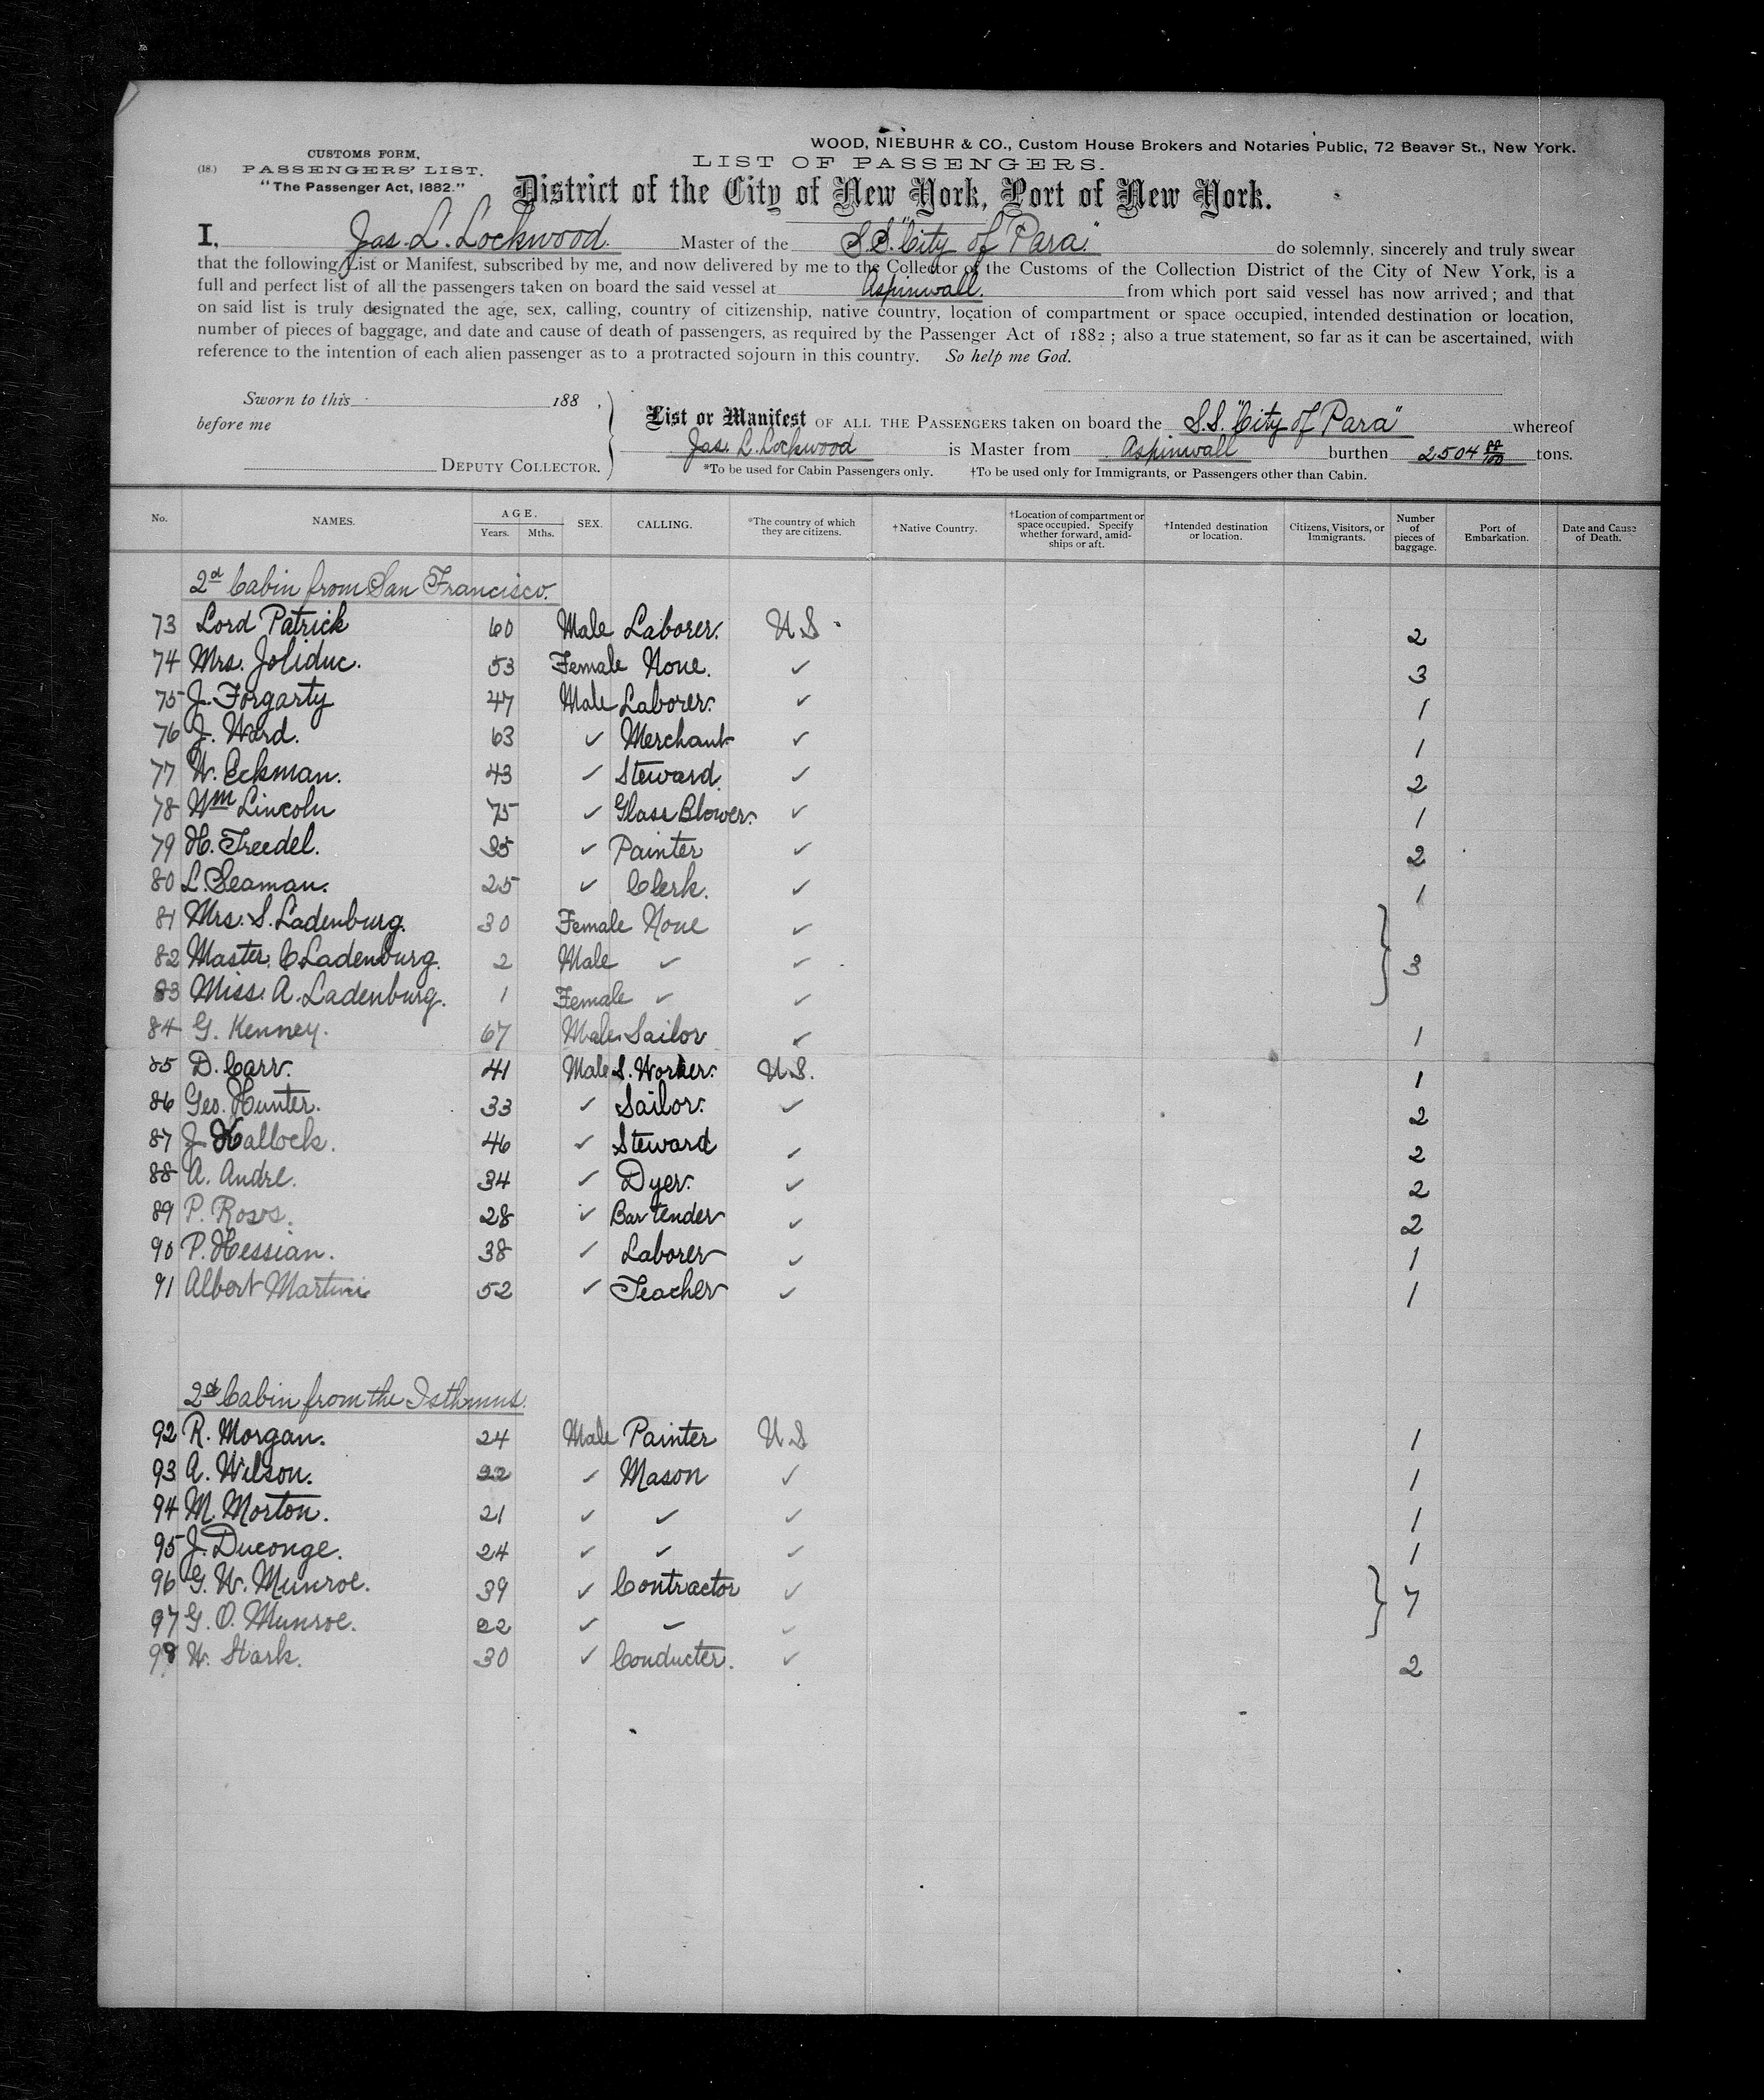 WOOD, NIEBUHR & CO., Custom House Brokers and Notaries Public, 72 Beaver St., New York.
CUSTOMS FORM,
(18.) PASSENGERS' LIST.
"The Passenger Act, 1882."
LIST OF PASSENGERS.
District of the City of New York, Port of New York.
I, Jas. L. Lockwood. Master of the S.S. "City of Para." do solemnly, sincerely and truly swear
that the following List or Manifest, subscribed by me, and now delivered by me to the Collector of the Customs of the Collection District of the City of New York, is a
full and perfect list of all the passengers taken on board the said vessel at Aspinwall. from which port said vessel has now arrived; and that
on said list is truly designated the age, sex, calling, country of citizenship, native country, location of compartment or space occupied, intended destination or location,
number of pieces of baggage, and date and cause of death of passengers, as required by the Passenger Act of 1882; also a true statement, so far as it can be ascertained, with
reference to the intention of each alien passenger as to a protracted sojourn in this country. So help me God.
Sworn to this 188 ,
before me
DEPUTY COLLECTOR.
List or Manifest OF ALL THE PASSENGERS taken on board the S.S. "City of Para" whereof
Jas. L. Lockwood is Master from Aspinwall burthen 2504 88/100 tons.
*To be used for Cabin Passengers only. †To be used only for Immigrants, or Passengers other than Cabin.
No. NAMES. AGE. Years. Mths. SEX. CALLING. *The country of which they are citizens. †Native Country. †Location of compartment or space occupied. Specify whether forward, amidships or aft. †Intended destination or location. Citizens, Visitors, or Immigrants. Number of pieces of baggage. Port of Embarkation. Date and Cause of Death.
2d Cabin from San Francisco.
73 Lord Patrick 60 Male Laborer. U S 2
74 Mrs. Joliduc. 53 Female None. ✓ 3
75 J. Forgarty 47 Male Laborer. ✓ 1
76 J. Ward. 63 ✓ Merchant ✓ 1
77 W. Eckman. 43 ✓ Steward. ✓ 2
78 Wm Lincoln 75 ✓ Glass Blower. ✓ 1
79 H. Treedel. 35 ✓ Painter ✓ 2
80 L. Seaman. 25 ✓ Clerk. ✓ 1
81 Mrs. S. Ladenburg. 30 Female None ✓
82 Master. C Ladenburg. 2 Male ✓ ✓ 3
83 Miss. A. Ladenburg. 1 Female ✓ ✓
84 G. Kenney. 67 Male Sailor ✓ 1
85 D. Carr. 41 Male S. Worker. U S. 1
86 Geo. Hunter. 33 ✓ Sailor. ✓ 2
87 J. Hallock. 46 ✓ Steward ✓ 2
88 A. Andre. 34 ✓ Dyer. ✓ 2
89 P. 28 ✓ Bar tender ✓ 2
90 P. Hessian. 38 ✓ Laborer ✓ 1
91 Albert Martini 52 ✓ Teacher ✓ 1
2d Cabin from the Isthmus.
92 R. Morgan. 24 Male Painter U S 1
93 A. Wilson. 22 ✓ Mason ✓ 1
94 M. Morton. 21 ✓ ✓ ✓ 1
95 J. Duconge. 24 ✓ ✓ ✓ 1
96 G. W. Munroe. 39 ✓ Contractor ✓ 7
97 G. O. Munroe. 22 ✓ ✓ ✓
98 W. Stark. 30 ✓ Conducter. ✓ 2